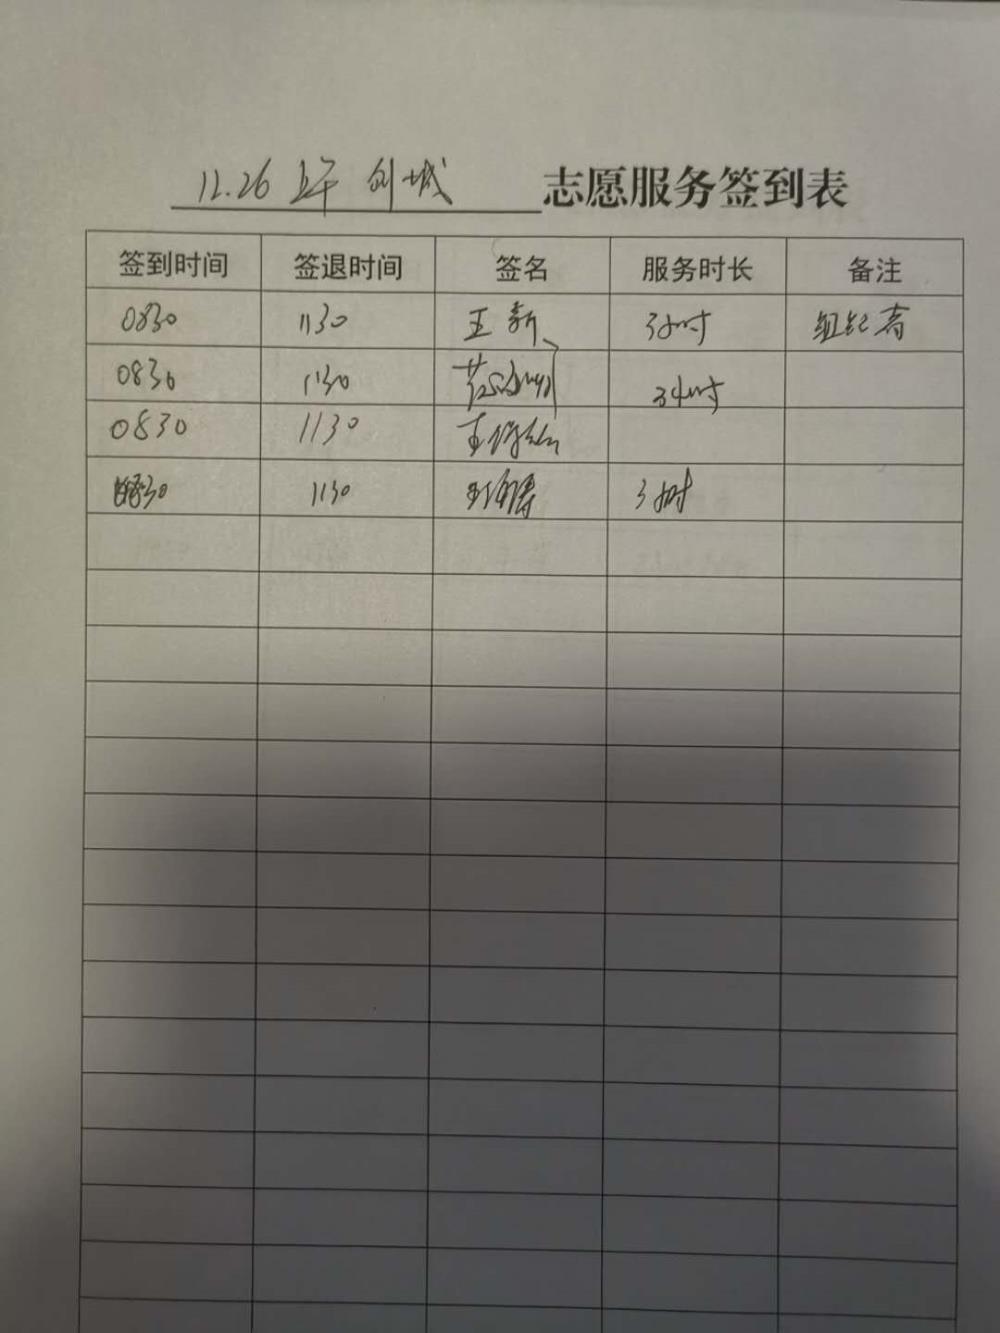 11.26 上午 创城 志愿服务签到表
签到时间 签退时间 签名 服务时长 备注
0830 1130 王新 3小时 组织者
0830 1130 3小时
0830 1130
0830 1130 3小时